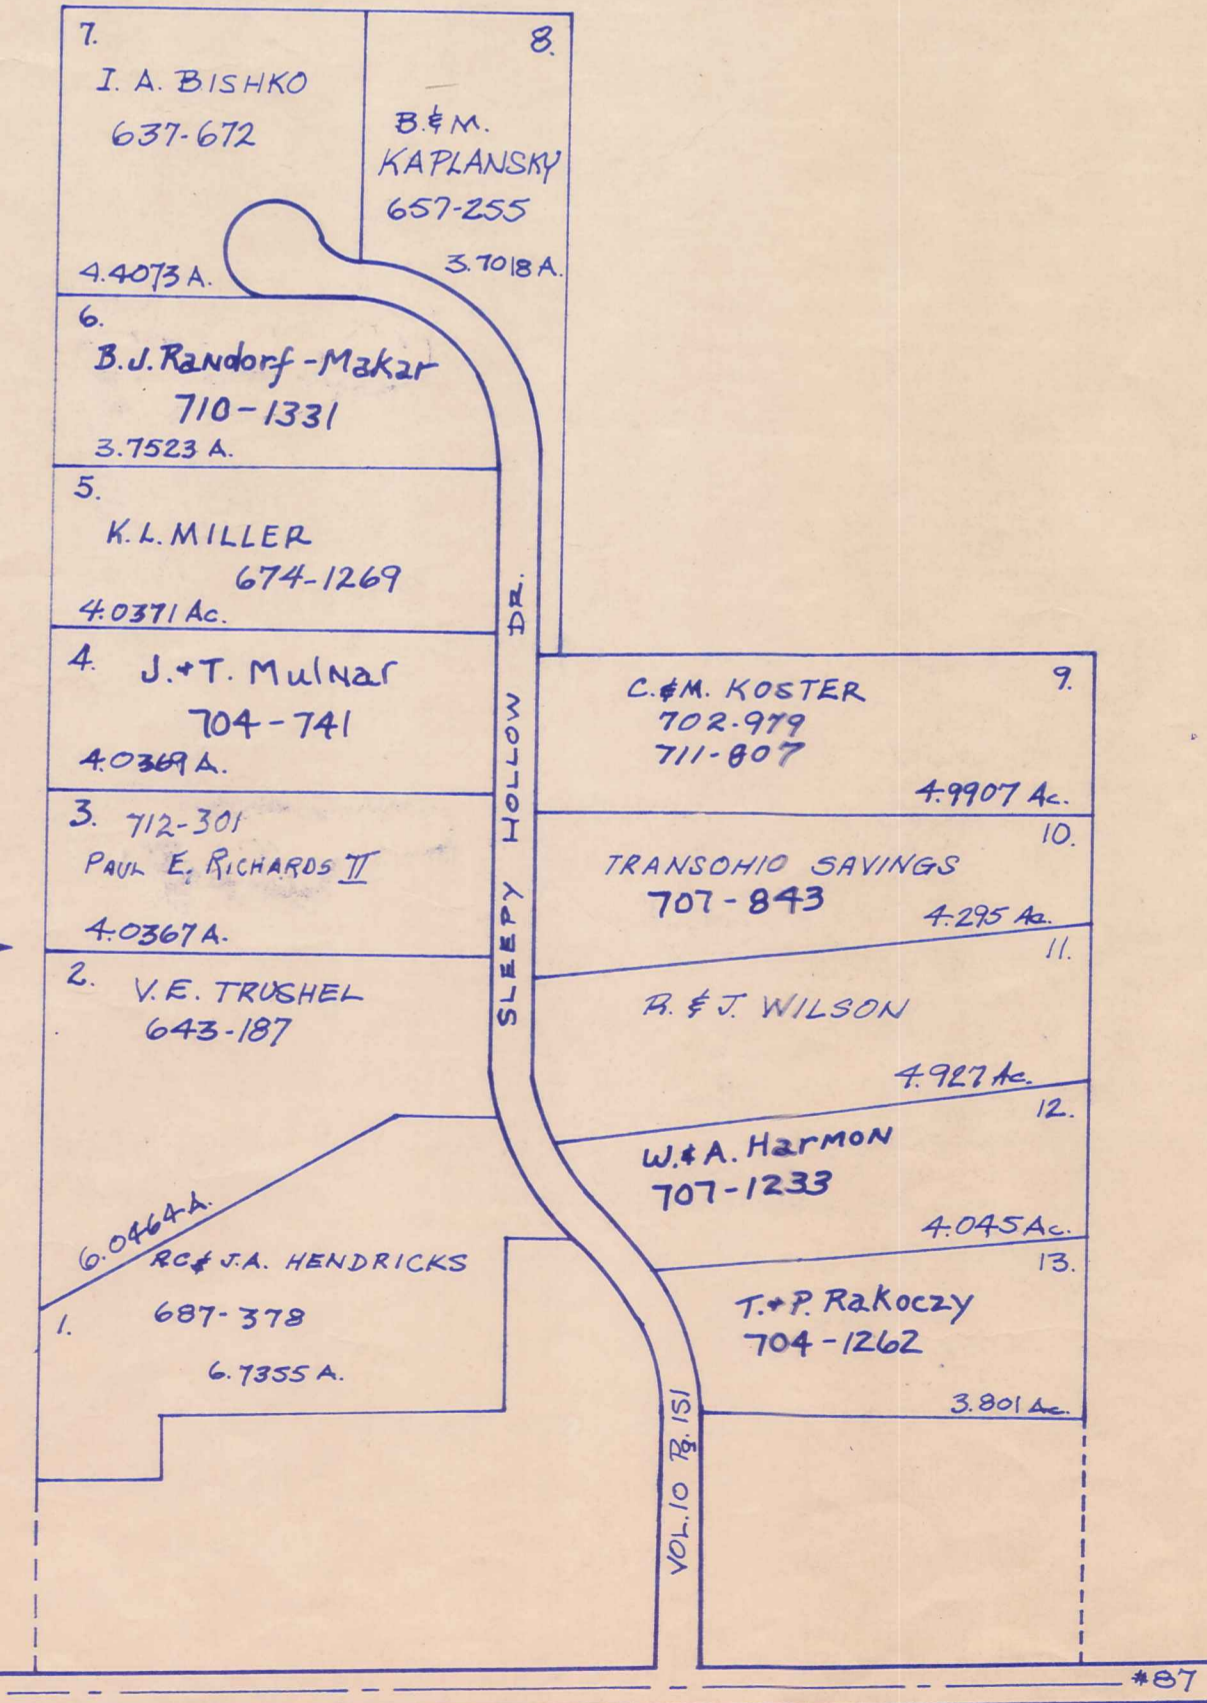 7.
I. A. BISHKO
637-672
4.4073 A.
8.
B. & M.
KAPLANSKY
657-255
3.7018 A.
6.
B.J. Randorf-Makar
710-1331
3.7523 A.
5.
K.L. MILLER
674-1269
4.0371 Ac.
4.
J. + T. Mulnar
704-741
4.0369 A.
3. 712-301
PAUL E. RICHARDS II
4.0367 A.
2.
V.E. TRUSHEL
643-187
6.0464 A.
1.
RC & J.A. HENDRICKS
687-378
6.7355 A.
SLEEPY HOLLOW DR.
9.
C. & M. KOSTER
702-979
711-807
4.9907 Ac.
10.
TRANSOHIO SAVINGS
707-843
4.295 Ac.
11.
R. & J. WILSON
4.927 Ac.
12.
W. & A. Harmon
707-1233
4.045 Ac.
13.
T. + P. Rakoczy
704-1262
3.801 Ac.
VOL. 10 Pg. 151
#87